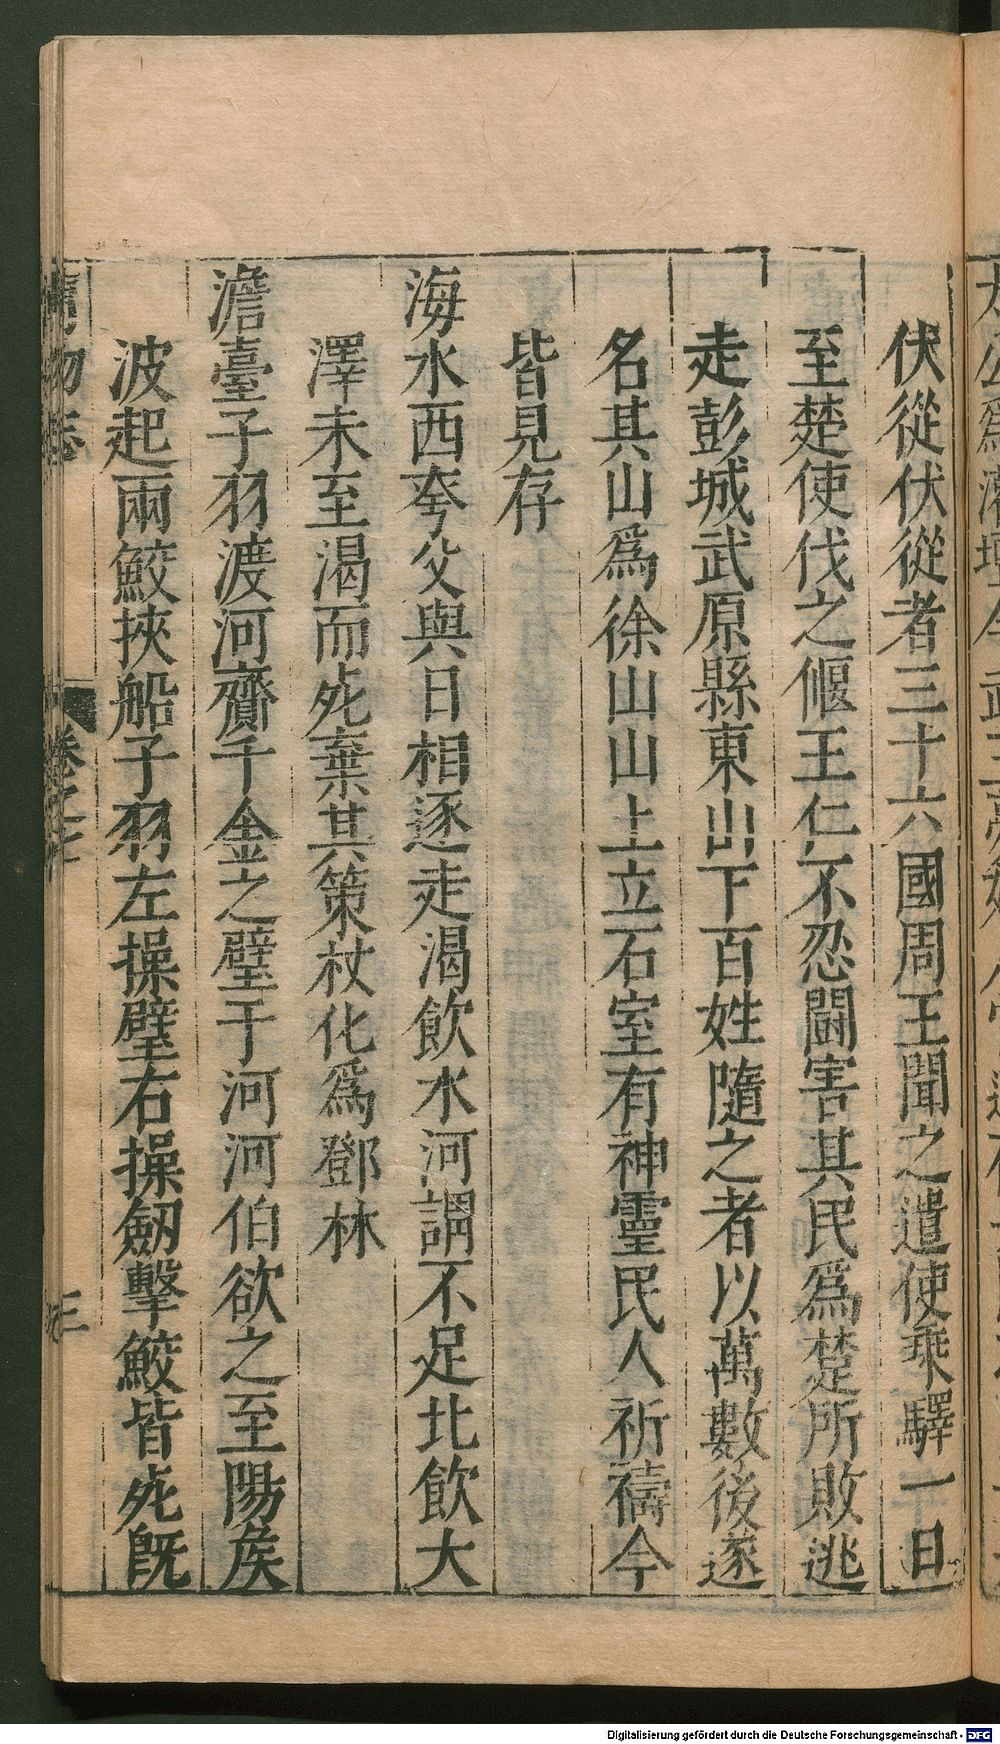 伏從伏從者三十六國周王聞之遣使乘驛一日
至楚使伐之偃王仁不忍鬬害其民爲楚所敗逃
走彭城武原縣東山下百姓隨之者以萬數後遂
名其山爲徐山山上立石室有神靈民人祈禱今
皆見存
海水西夸父與日相逐走渴飲水河謂不足北飲大
澤未至渴而死棄其策杖化爲鄧林
澹臺子羽渡河齎千金之璧于河河伯欲之至陽矦
波起兩鮫挾船子羽左操璧右操劒擊鮫皆死旣
卷之七
三
Digitalisierung gefördert durch die Deutsche Forschungsgemeinschaft - DFG